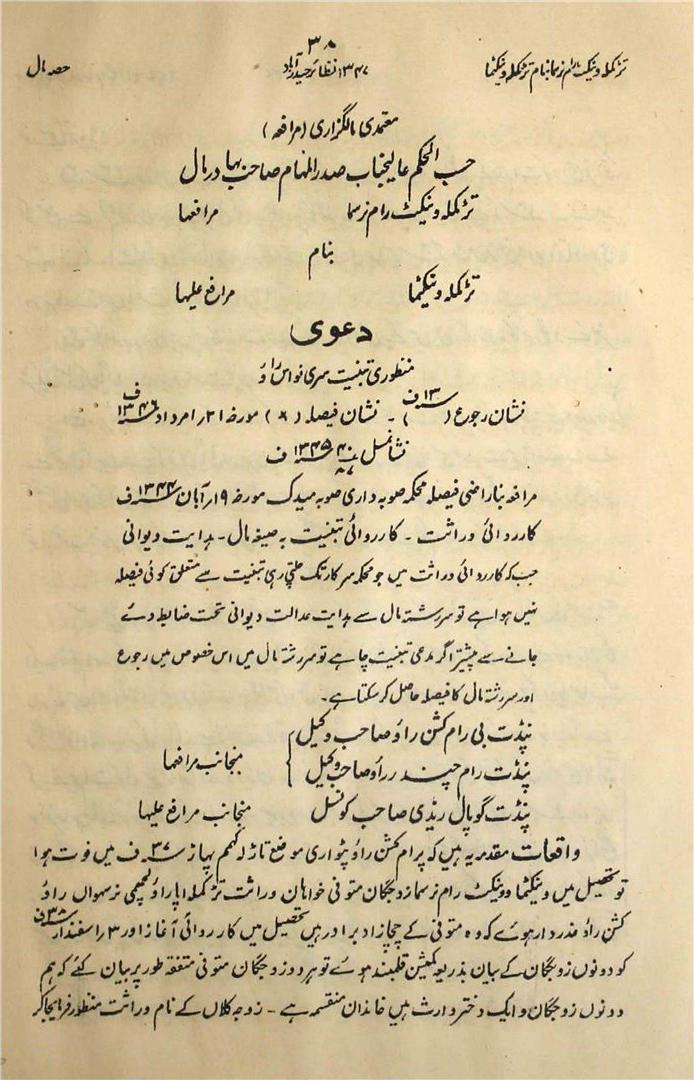 ۳۸
تڑکملہ وینکٹ رام نرسما بنام تڑکملہ وینکٹما ۱۳۴۷ نظائر حیدرآباد حصہ مال
معتمدی مالگزاری (مرافعہ)
حسب الحکم عالیجناب صدر المہام صاحب بہادر مال
تڑکملہ وینکٹ رام نرسما مرافعہا
بنام
تڑکملہ وینکٹما مرافع علیہا
دعوی
منظوری تبنیت سری نواس راؤ
نشان رجوع ( ۱۳ ف ) ۔ نشان فیصلہ (۶) مورخہ ۲۱ امرداد ۱۳۴۶ ف
نشان مثل ۱۳۴۵ ف
مرافعہ بناراضی فیصلہ محکمہ صوبہ داری صوبہ میدک مورخہ ۱۹ آبان ۱۳۴۴ ف
کارروائی وراثت ۔ کارروائی تبنیت بہ صیغہ مال ۔ ہدایت دیوانی
جب کہ کارروائی وراثت میں جو محکمہ سرکار تک چلتی رہی تبنیت سے متعلق کوئی فیصلہ
نہیں ہوا ہے تو سررشتہ مال سے ہدایت عدالت دیوانی تحت ضابطہ دئے
جانے سے پیشتر اگر مدعی تبنیت چاہے تو سررشتہ مال میں اس خصوص میں رجوع
اور سررشتہ مال کا فیصلہ حاصل کرسکتا ہے ۔
پنڈت بی رام کشن راؤ صاحب وکیل
پنڈت رام چندر راؤ صاحب وکیل } منجانب مرافعہا
پنڈت گوپال ریڈی صاحب کونسل منجانب مرافع علیہا
واقعات مقدمہ یہ ہیں کہ پرام کشن راؤ پٹواری موضع تاڑلہ کہم پہاڑ ۳۷ ف میں فوت ہوا
تو تحصیل میں وینکٹما و وینکٹ رام نرسما زوجگان متوفی خواہان وراثت تڑکملہ اپاراؤ لچھمی نرسہواں راؤ
کشن راؤ عذر دار ہوے کہ وہ متوفی کے چچازاد برادر ہیں تحصیل میں کارروائی آغاز اور ۳ اسفندار ۳۸ ف
کو دونوں زوجگان کے بیان بذریعہ کمیشن قلمبند ہوے تو ہر دو زوجگان متوفی متفقہ طور پر بیان کئے کہ ہم
دونوں زوجگان و ایک دختر وارث ہیں خاندان منقسمہ ہے ۔ زوجہ کلاں کے نام وراثت منظور فرمایجاکر